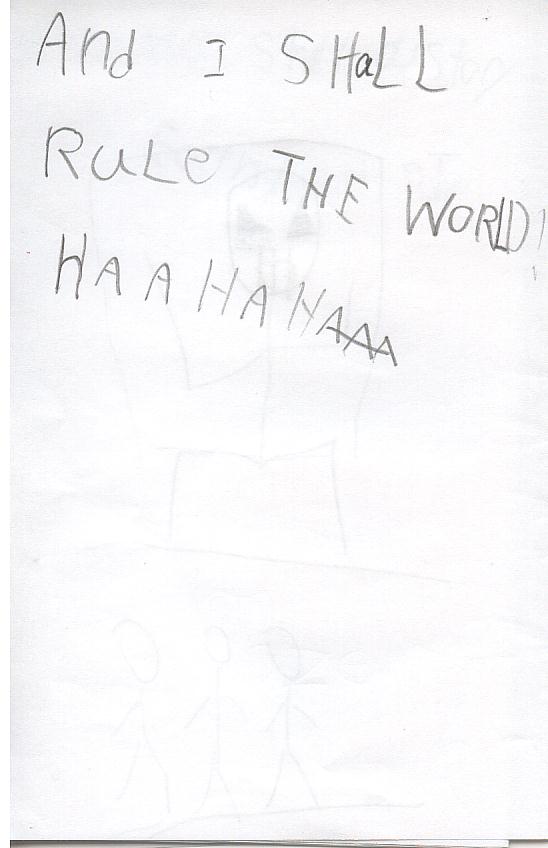 And I SHaLL
RuLe THE WORLD!
HAAHAHAAAA